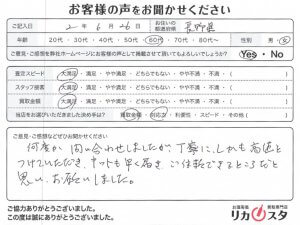 お客様の声をお聞かせください
ご記入日 2 年 6 月 26 日 お住いの都道府県 長野県
年齢 20代・30代・40代・50代・60代・70代・80代～ 性別 男・女
ご意見・ご感想を弊社ホームページにお客様の声として掲載させて頂いてもよろしいでしょうか? Yes・No
査定スピード 大満足・満足・やや満足・どちらでもない・やや不満・不満・( )
スタッフ接客 大満足・満足・やや満足・どちらでもない・やや不満・不満・( )
買取金額 大満足・満足・やや満足・どちらでもない・やや不満・不満・( )
当店をお選びいただきました決め手は? 買取金額・対応力・利便性・スピード・その他 ( )
ご意見・ご感想などぜひお聞かせください。
何度か問い合わせしましたが、丁寧に、しかも高値を
つけていただき、キットも早く届き、ご信頼できるところだと
思い、お願いしました。
ご協力ありがとうございました。
この度は誠にありがとうございました。
お酒高価買取専門店
リカスタ